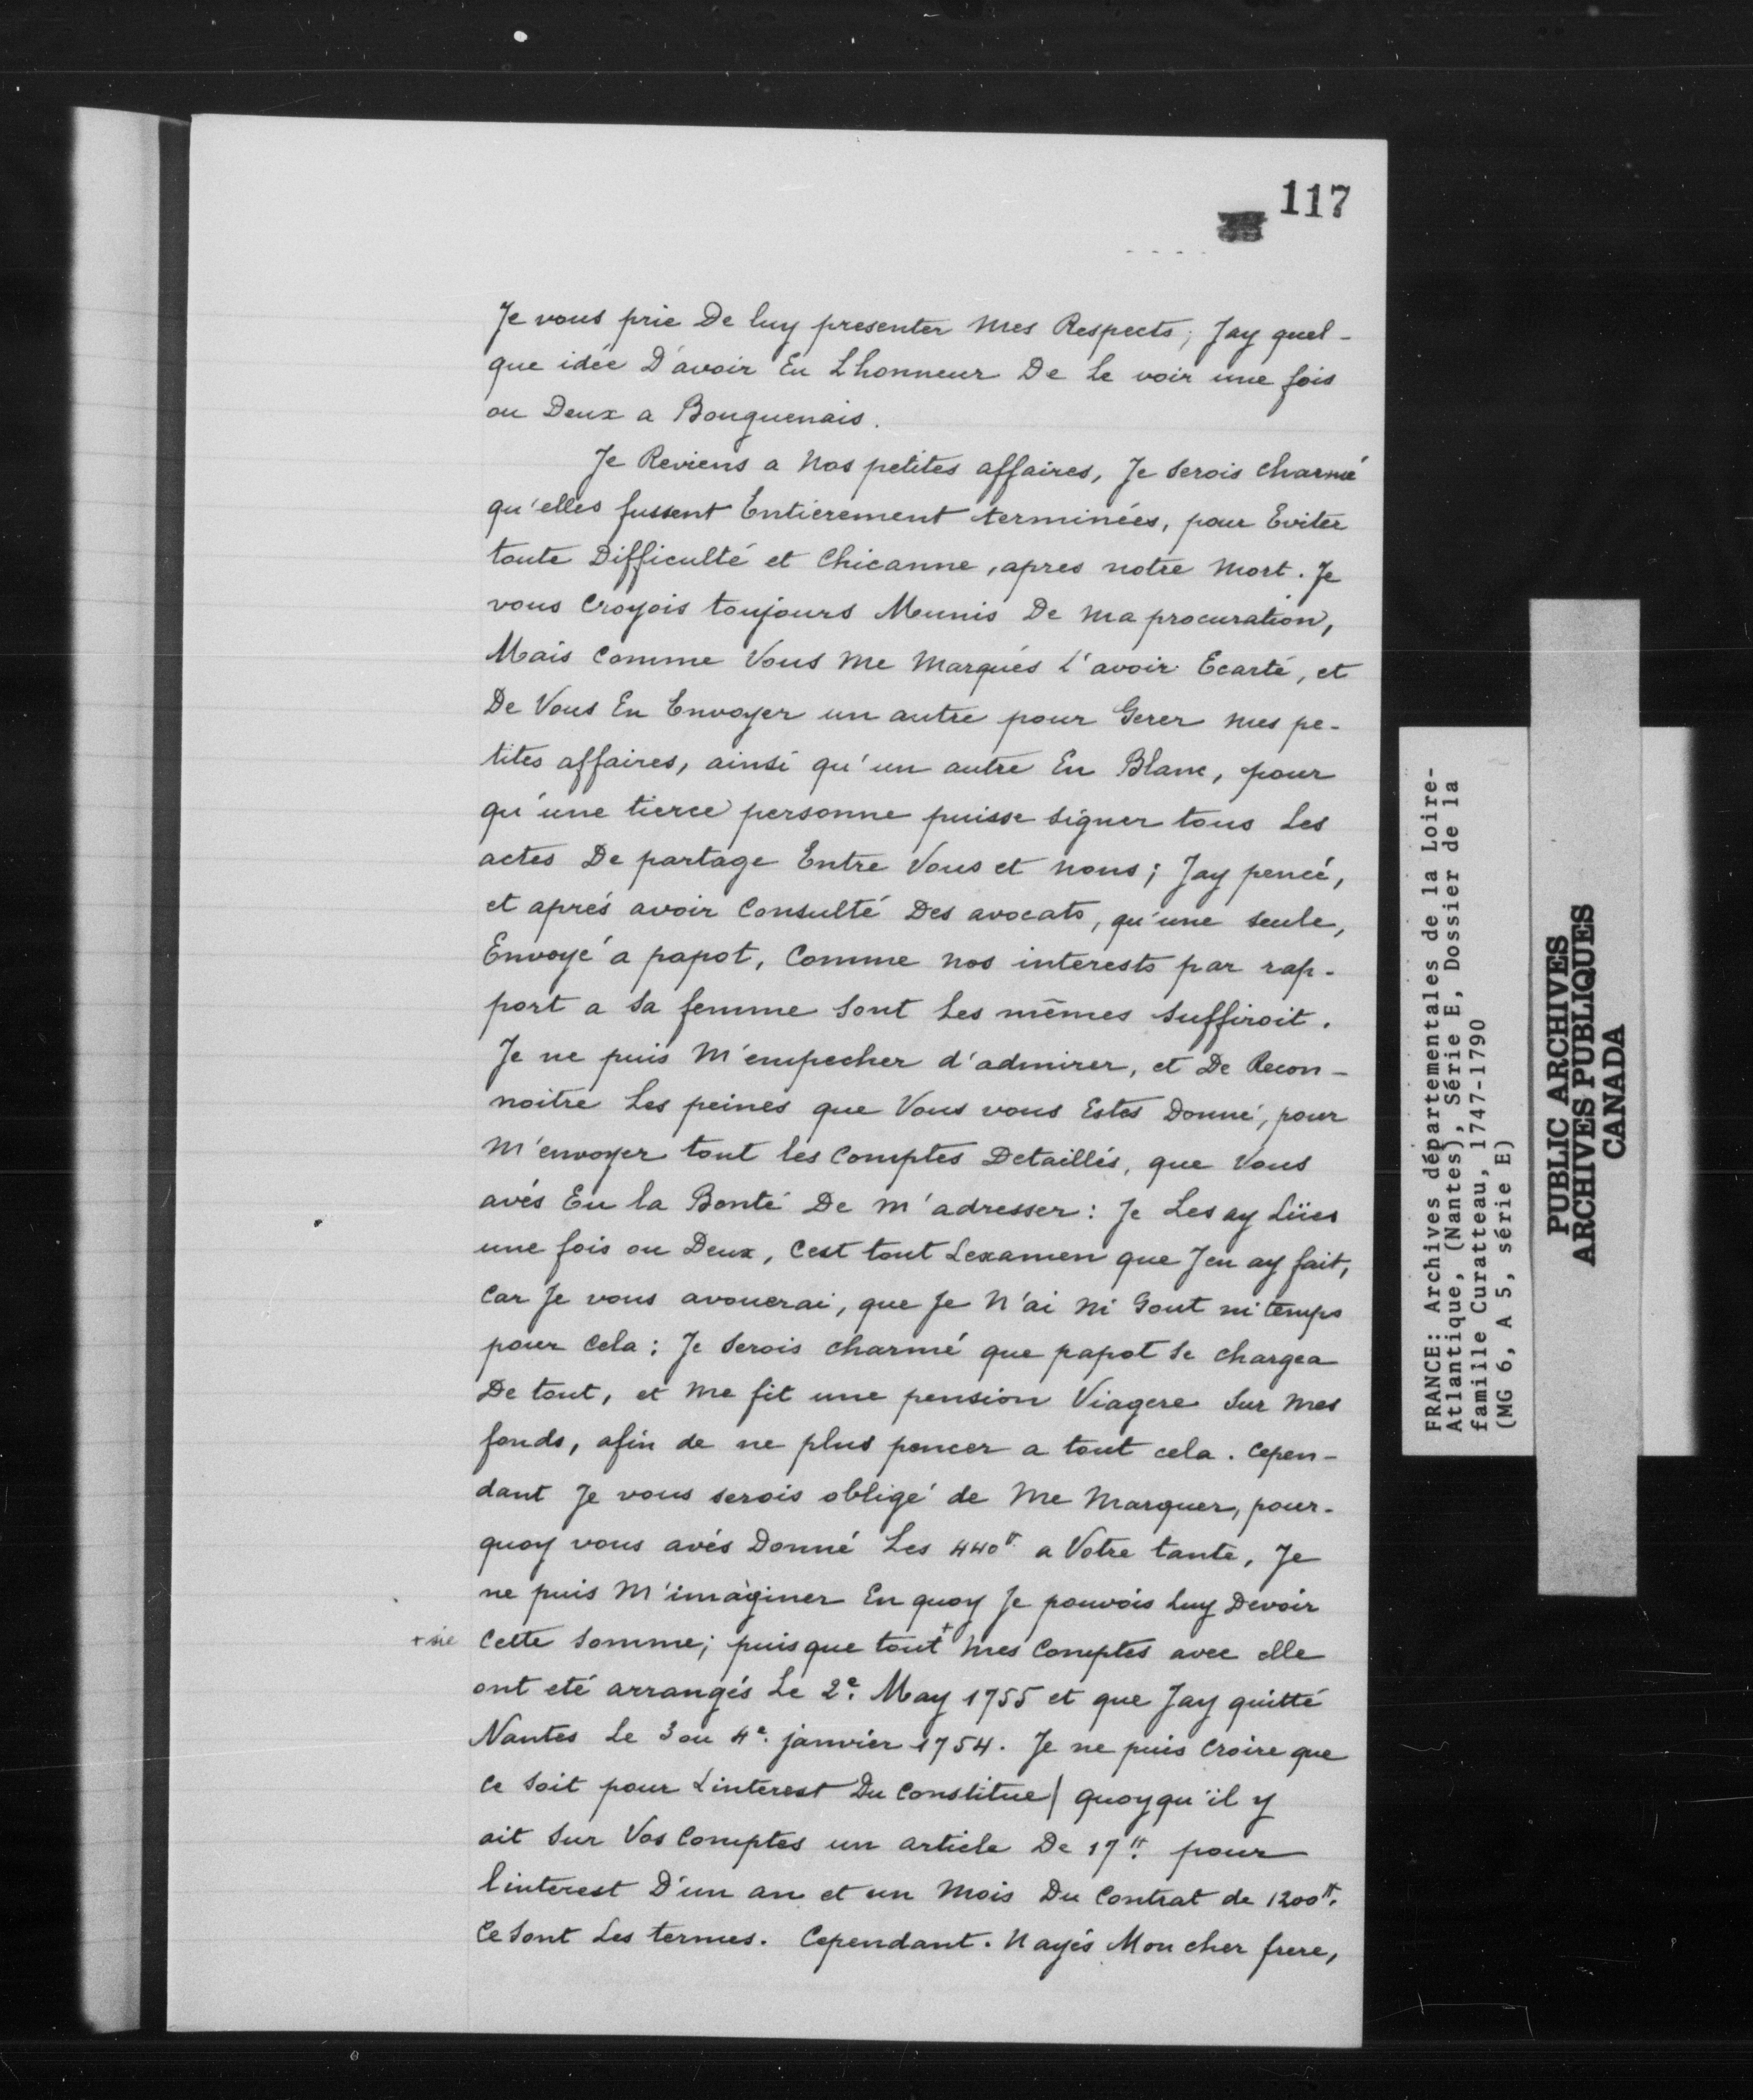 117
Je vous prie De luy presenter mes Respects; Jay quel-
que idée D'avoir Eu Lhonneur De Le voir une fois
ou Deux a Bouguenais.
Je Reviens a Nos petites affaires, Je serois charmé
qu'elles fussent Entierement terminées, pour Eviter
toute Difficulté et Chicanne, apres notre Mort. Je
vous Croyois toujours Munis De Ma procuration,
Mais Comme Vous Me Marqués L'avoir Ecarté, et
De Vous En Envoyer un autre pour Gerer mes pe-
tites affaires, ainsi qu'un autre En Blanc, pour
qu'une tierce personne puisse signer tous Les
actes De partage Entre Vous et nous; Jay pencé,
et aprés avoir Consulté Des avocats, qu'une seule,
Envoyé a papot, Comme nos interests par rap-
port a sa femme sont Les mêmes suffiroit.
Je ne puis M'empecher d'admirer, et De Recon-
noitre Les peines que Vous vous Estes Donné, pour
M'envoyer tout les Comptes Detaillés, que Vous
avés Eu la Bonté De M'adresser: Je Les ay Lües
une fois ou Deux, Cest tout Lexamen que Jen ay fait,
Car Je vous avouerai, que Je N'ai Ni Gout ni temps
pour Cela; Je serois charmé que papot se chargea
De tout, et Me fit une pension Viagere sur Mes
fonds, afin de ne plus pencer a tout cela. Cepen-
dant Je vous serois obligé de Me Marquer, pour-
quoy vous avés Donné Les 440tt a Votre tante, Je
ne puis M'imaginer En quoy Je pouvois Luy Devoir
+ sic Cette somme; puisque tout+ Mes Comptes avec elle
ont eté arrangés Le 2e. May 1755 et que Jay quitté
Nantes Le 3 ou 4e. janvier 1754. Je ne puis Croire que
Ce soit pour Linterest Du Constitue/ quoyqu'il y
ait sur Vos Comptes un article De 17tt. pour
l'interest D'un an et un Mois Du Contrat de 1200tt.
Ce sont Les termes. Cependant. Nayés Mon cher frere,
FRANCE: Archives départementales de la Loire-
Atlantique, (Nantes), Série E, Dossier de la
famille Curatteau, 1747-1790
(MG 6, A 5, série E)
PUBLIC ARCHIVES
ARCHIVES PUBLIQUES
CANADA